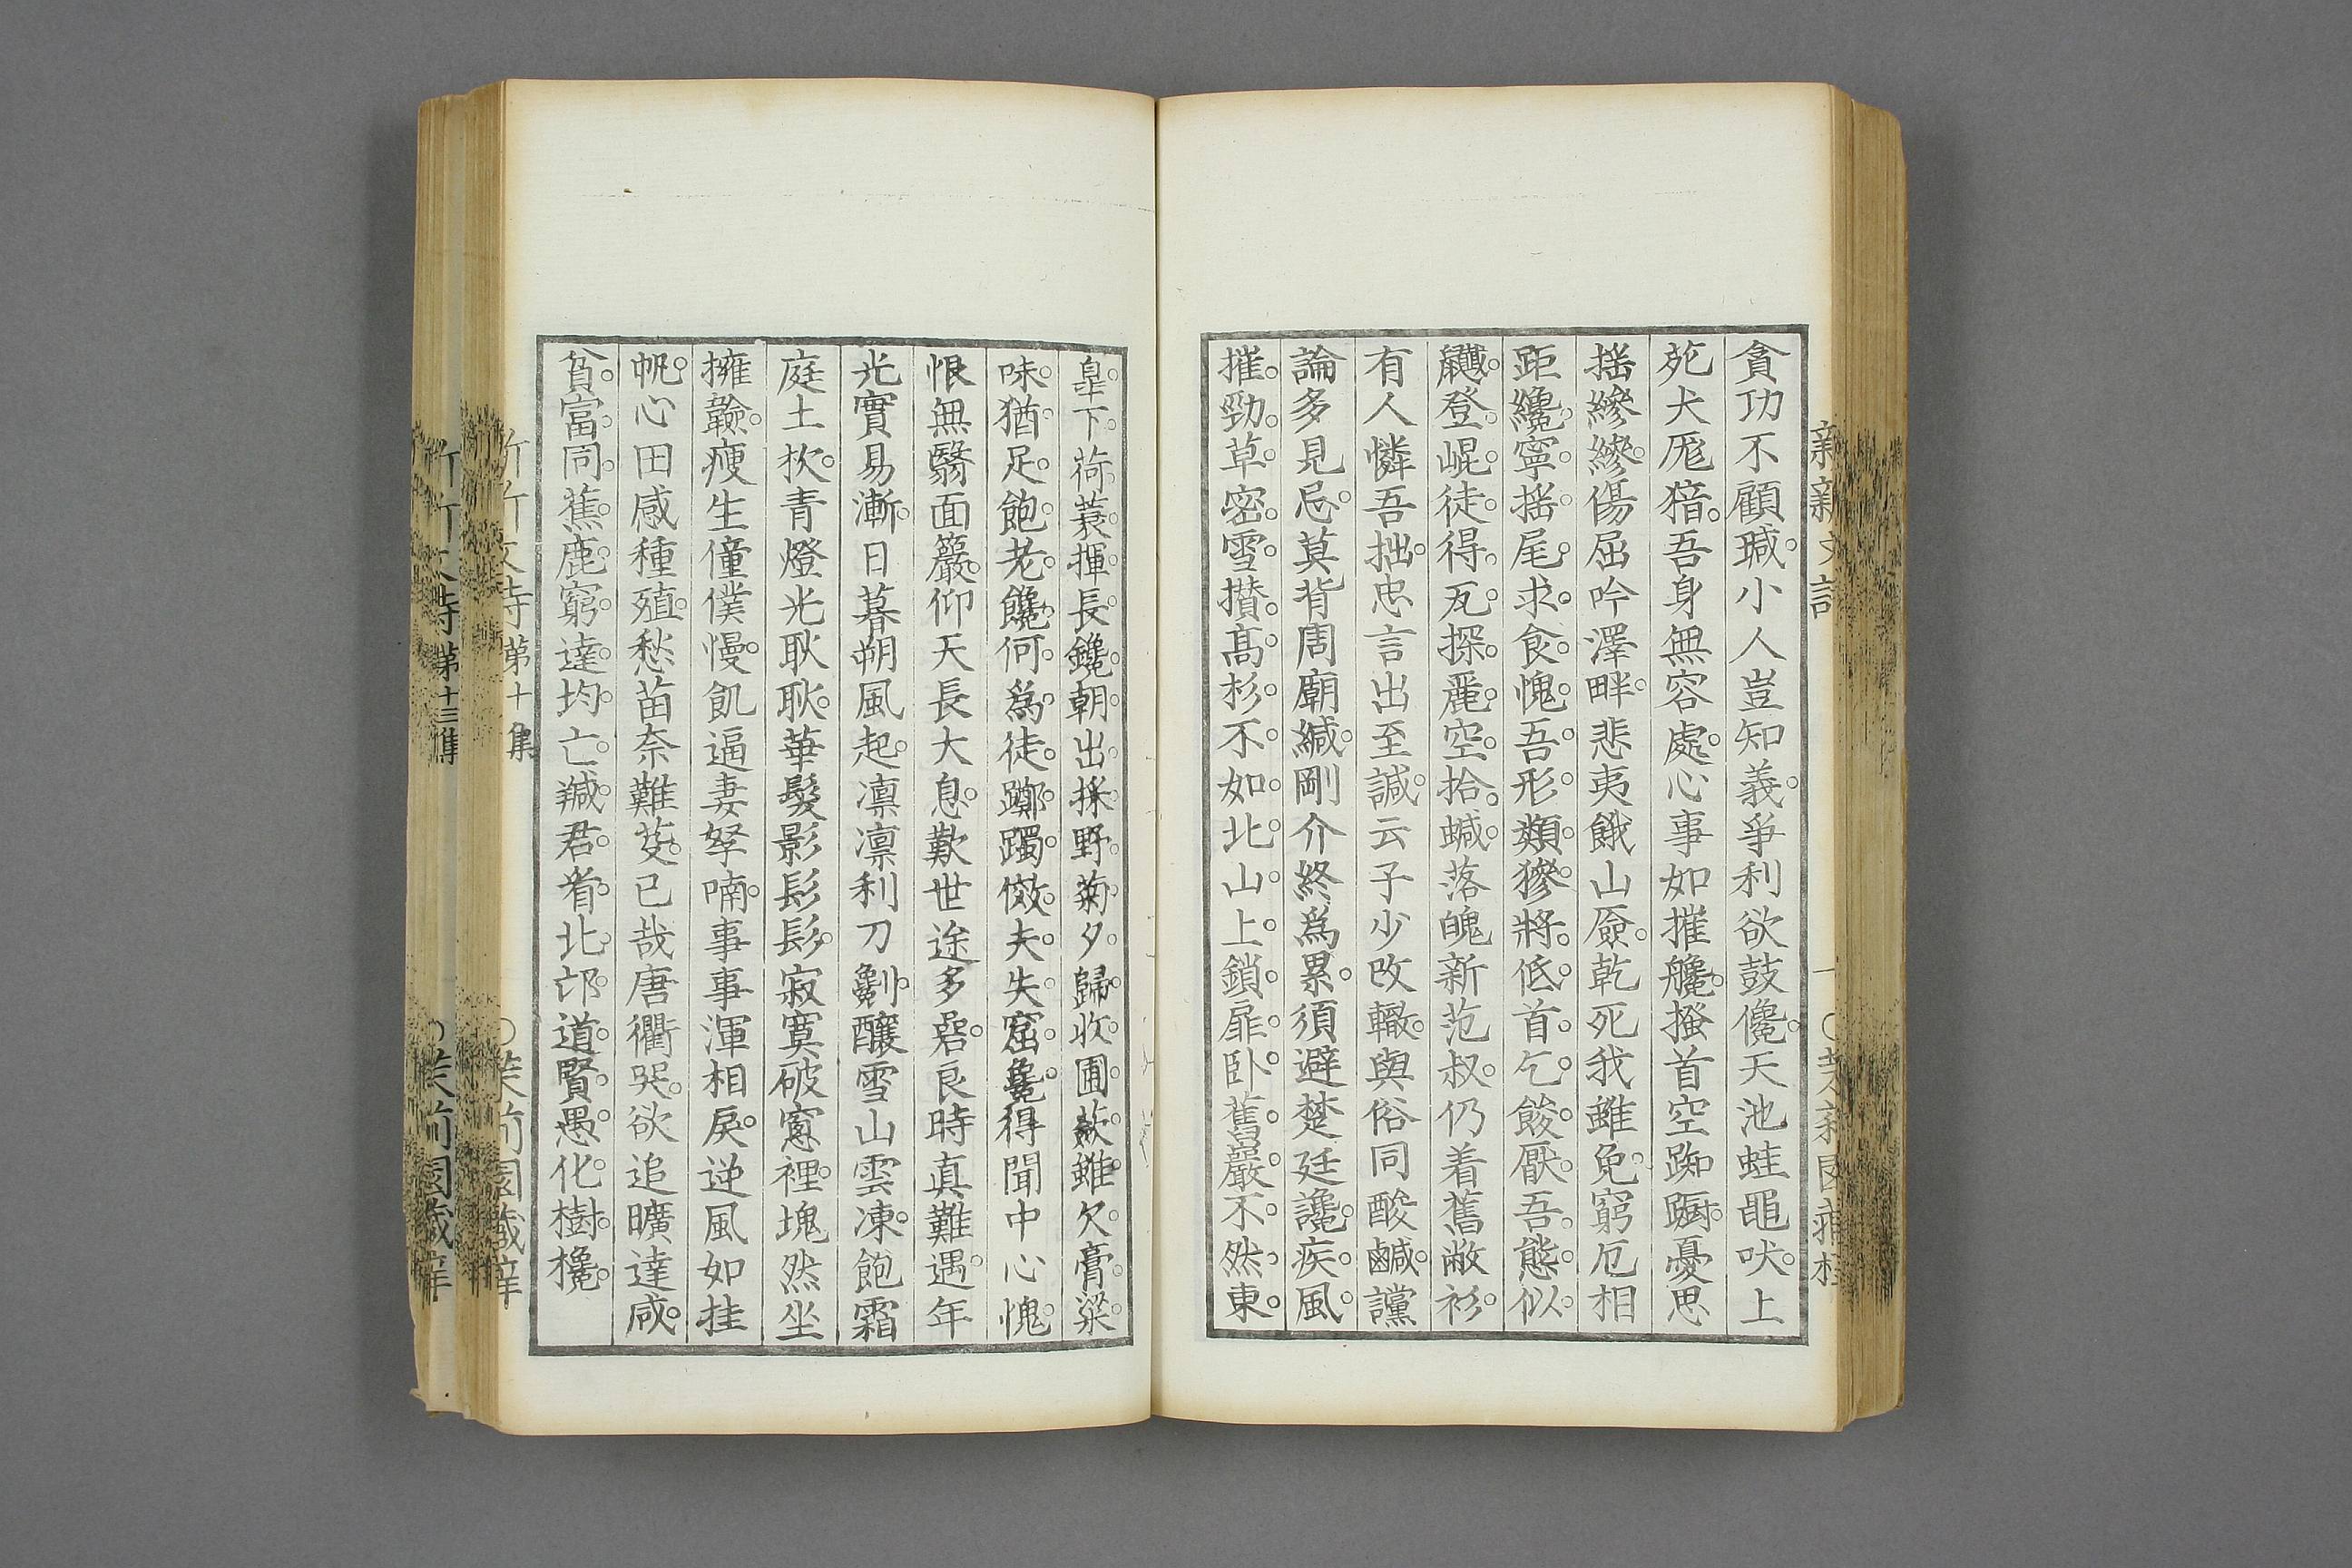 貪功不顧瑊小人豈知義爭利欲鼓儳天池蛙黽吠上
死犬厖猎吾身無容處心事如摧艬搔首空踟躕憂思
搖縿縿傷屈吟澤畔悲夷餓山嶮乾死我雖免窮厄相
距纔寧搖尾求食愧吾形類獥將低首乞餕厭吾態似
登崐徒得瓦探麗空拾蝛落魄新范叔仍着舊敝衫
有人憐吾拙忠言出至諴云子少改轍與俗同酸鹹讜
論多見忌莫背周廟緘剛介終爲累須避楚廷讒疾風
摧勁草密雪攢髙杉不如北山上鎖扉卧舊巖不然東
皐下荷蓑揮長鑱朝出採野菊夕歸收圃蔌雖欠膏粱
味猶足飽老饞何爲徒躑躅傚夫失窟毚得聞中心愧
恨無翳面籮仰天長大息歎世途多碞良時真難遇年
光實易漸日暮朔風起凛凛利刀劖釀雪山雲凍飽霜
庭土杴青燈光耿耿華髮影髟髟寂寞破窻裡塊然坐
擁韽瘦生僮僕慢飢逼妻孥喃事事渾相戾逆風如挂
帆心田感種殖愁苗奈難芟已哉唐衢哭欲追曠達咸
貧富同蕉鹿窮達均亡羬君看北邙道賢愚化樹欃